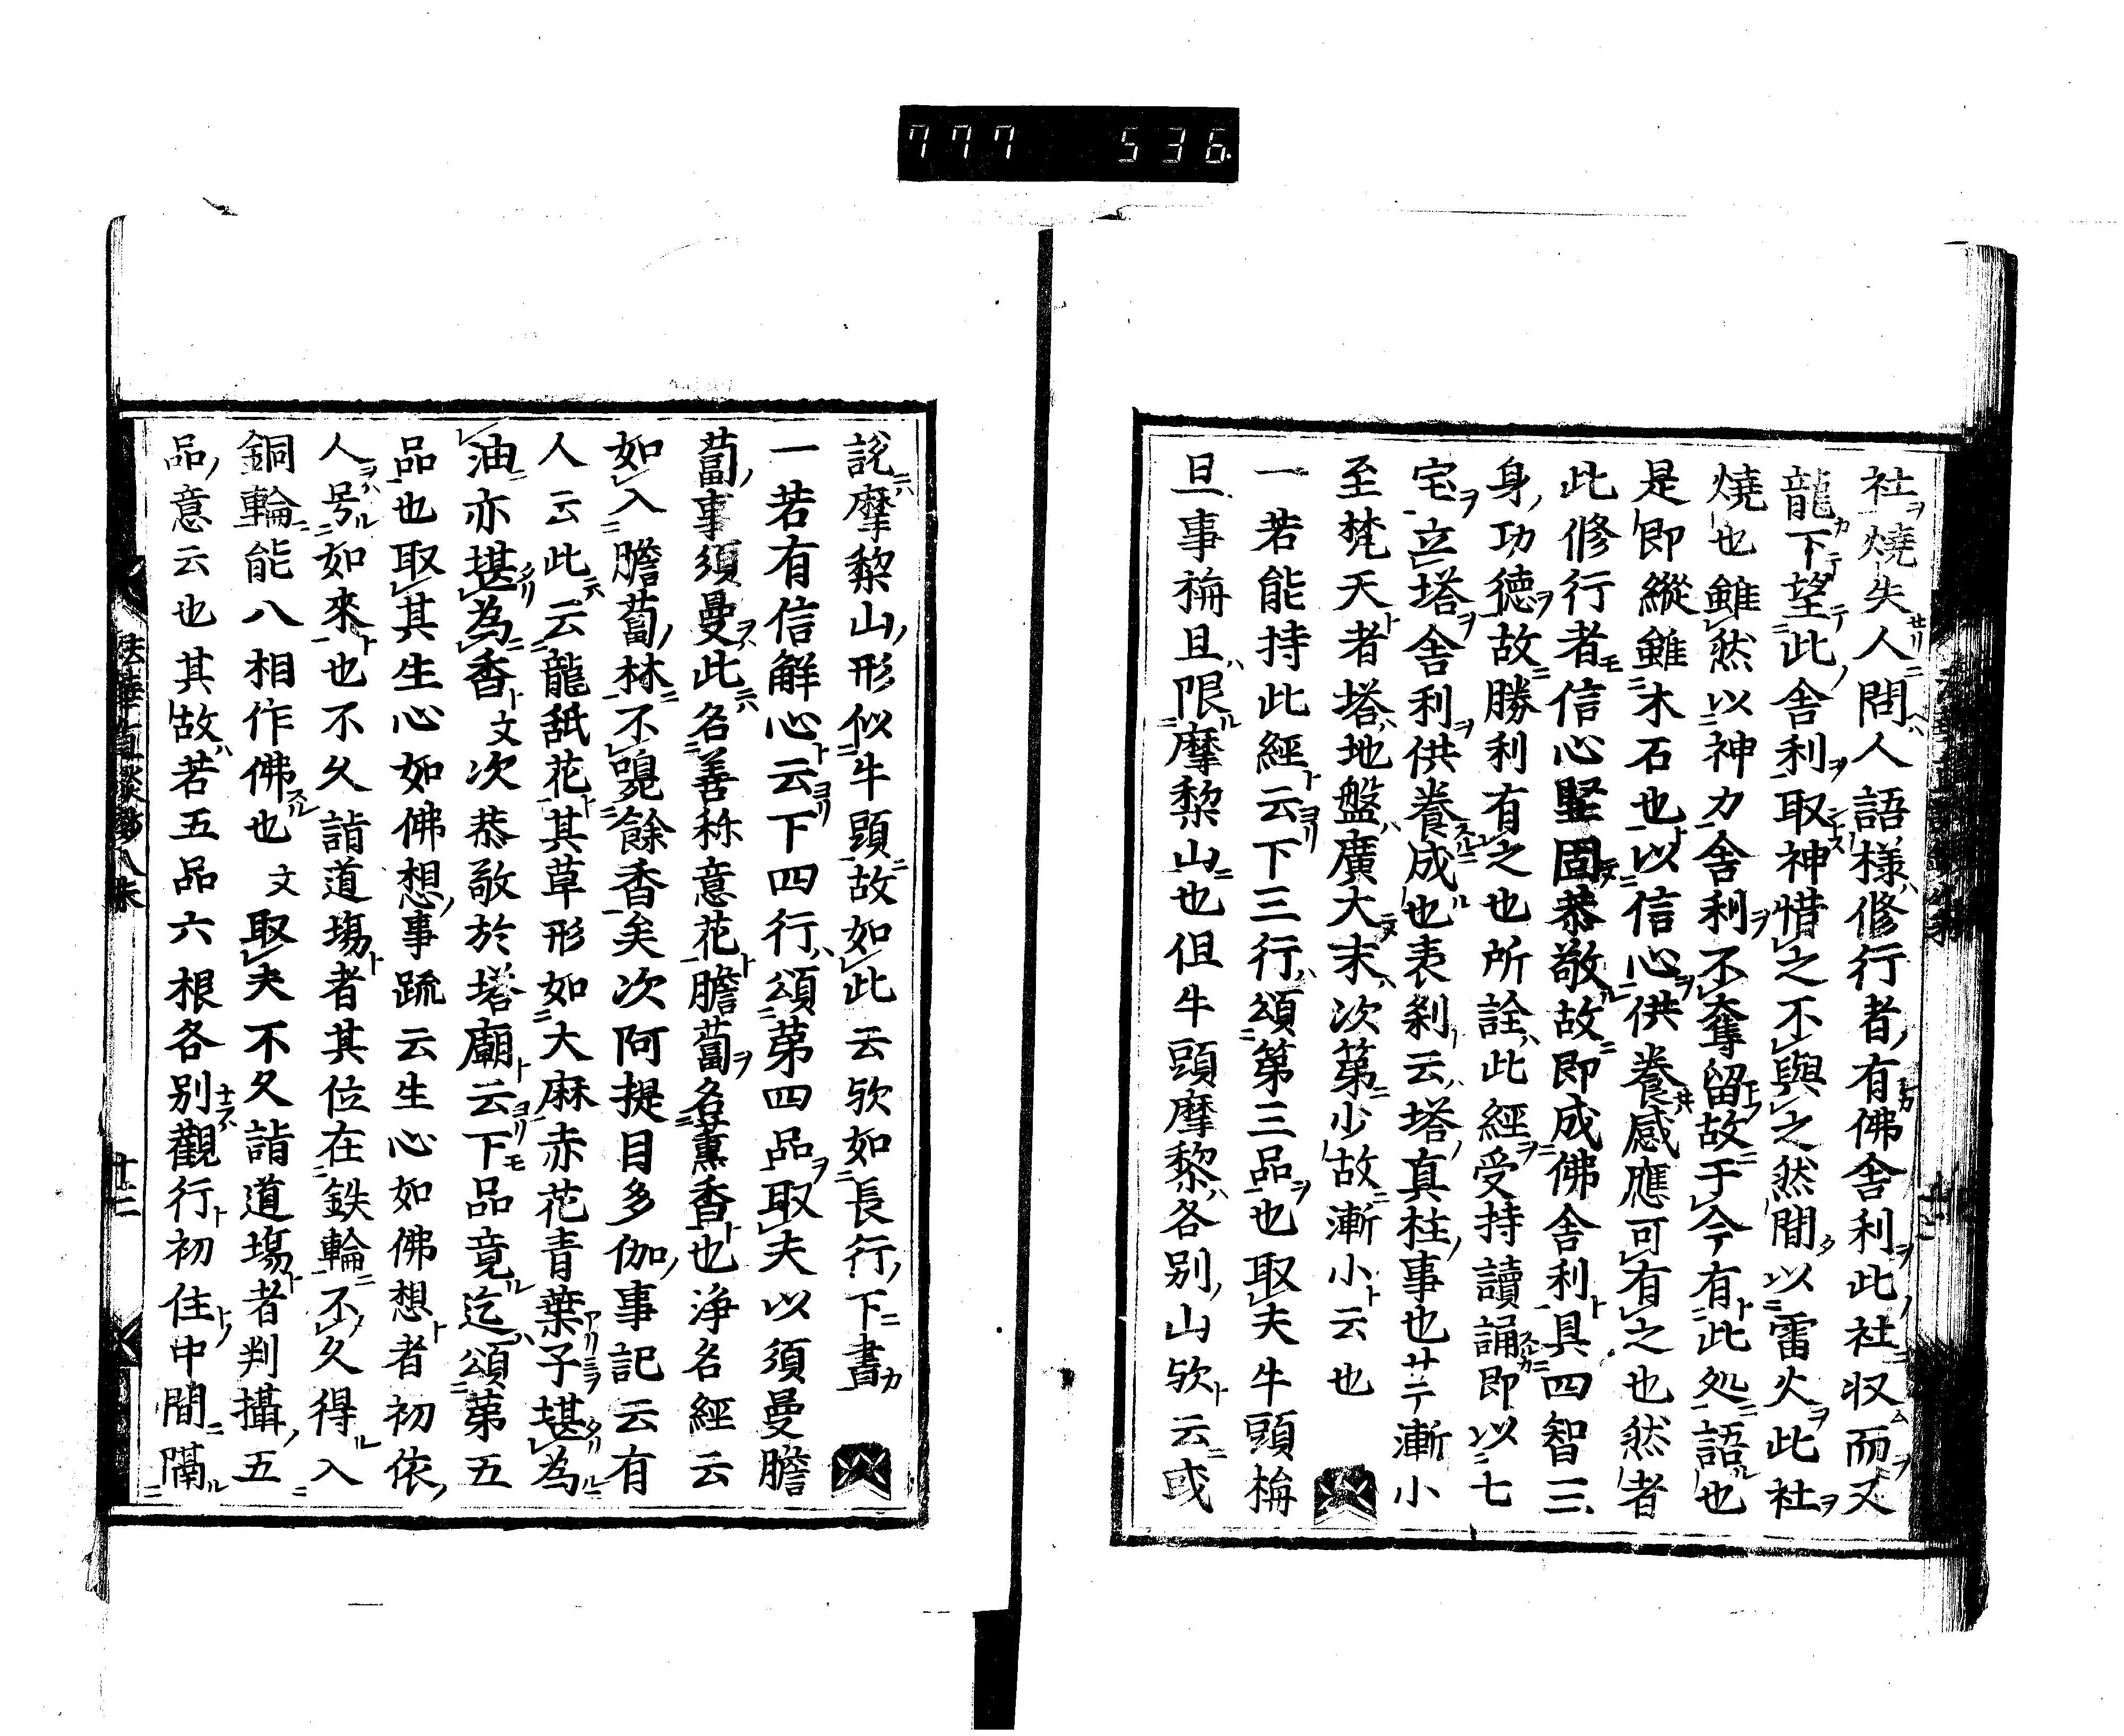 777 536
社燒失人問人語様修行者有佛舎利此社収而又
龍下望此舎利取神惜之不與之然間以雷火此社
燒也雖然以神力舎利不奪留故于今有此処語也
是即縱雖木石也以信心供養感應可有之也然者
此修行者信心堅固恭敬故即成佛舎利具四智三
身功徳故勝利有之也所詮此経受持讀誦即以七
宅立塔舎利供養成也表刹云塔真柱事也サテ漸小
至梵天者塔地盤廣大末次第少故漸小云也
一若能持此経云下三行頌第三品也取夫牛頭栴
旦事栴旦限摩黎山也但牛頭摩黎各別山欤云或
説摩黎山形似牛頭故如此云欤如長行下書
一若有信解心云下四行頌第四品取夫以須曼瞻
蔔事須曼此名善称意花瞻蔔名薫香也浄名經云
如入瞻蔔林不嗅餘香矣次阿提目多伽事記云有
人云此云龍舐花其草形如大麻赤花青葉子堪為
油亦堪為香文次恭敬於塔廟云下品竟迄頌第五
品也取其生心如佛想事疏云生心如佛想者初依
人号如來也不久詣道塲者其位在鉄輪不久得入
銅輪能八相作佛也文取夫不久詣道塲者判攝五
品意云也其故若五品六根各別觀行初住中間隔
法華直談鈔八末 十二